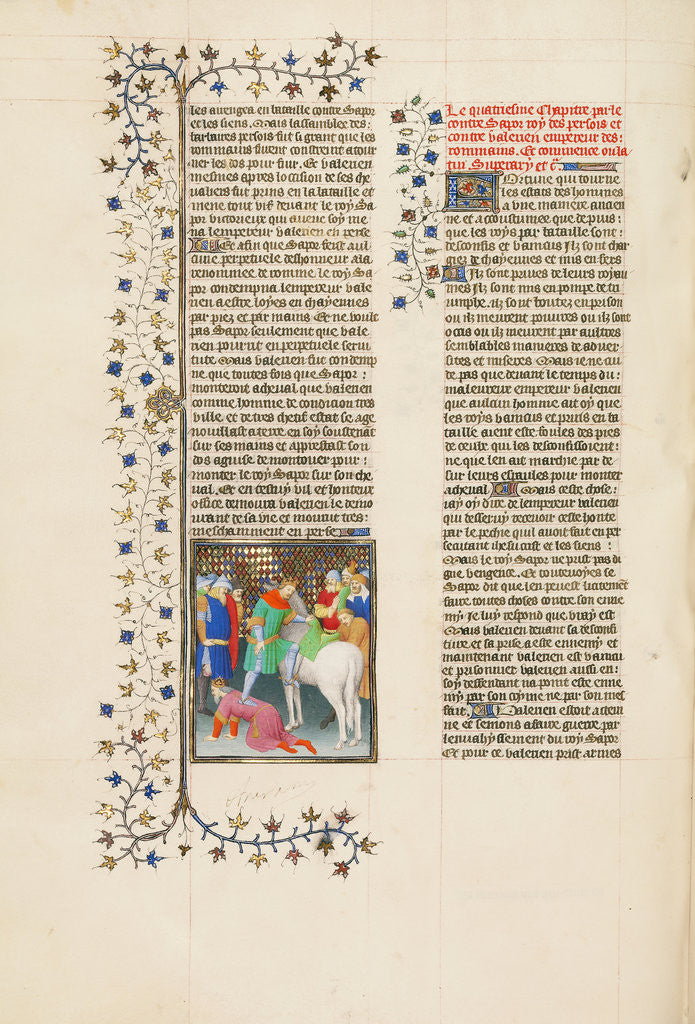 les auengea en bataille contre Sapor
et les siens. Mais lassamblee des
tartaires persois fut si grant que les
rommains furent constreint a tour
ner les dos pour fuir. Et valerien
mesmes apres loccision de ses che
ualiers fut prins en la bataille et
mene tout vif deuant le roy Sa
por victorieux qui auenc soy me
na lempereur valerien en perse
Et afin que Sapor feist aul
cune perpetuele deshonneur a la
renommee de romme. le roy Sa
por condempna lempereur vale
rien a estre loyes en chayennes
par piez et par mains. Et ne voult
pas Sapor seulement que vale
rien pourrit en perpetuele serui
tute Mais valerien fut condemp
ne que toutes fois que Sapor
monteroit a cheual que valerien
comme homme de condicion tres
ville et de tres chetif estat se age
noullast a terre en soy soustenant
sur ses mains et apprestast son
dos a guise de montouer pour
monter le roy Sapor sur son che
ual. Et en cestuy vil et honteux
office demoura valerien le demo
rant de sa vie et mourut tres
meschamment en perse
Le quatriesme Chapitre parle
contre Sapor roy des persois et
contre valerien empereur des
rommains. Et commence ou la
tin Superaty et c̄.
Fortune qui tourne
les estas des hommes
a vne maniere ancien
ne et acoustumee que depuis
que les roys par bataille sont
desconfis et vaincus Ilz sont char
giez de chayennes et mis en fers
Ilz sont priues de leurs royau
mes Ilz sont mis en pompe de tri
umphe. ilz sont boutez en prison
ou ilz meurent pouures ou ilz sont
occis ou ilz meurent par aultres
semblables manieres de aduer
sites et miseres Mais ie ne cui
de pas que deuant le temps du
maleureux empereur valerien
que aulcun homme ait oy que
les roys vaincus et prins en ba
taille aient este foules des pies
de ceulx qui les desconfissoient
ne que len ait marchie par de
sur leurs espaules pour monter
a cheual. Mais ceste chose
iay oy dire de lempereur valerien
qui desseruy receuoir ceste honte
par le pechie quil auoit fait en per
secutant ihesucrist et les siens
Mais le roy Sapor ne prist pas di
gne vengence. Et toutesuoyes se
Sapor dit que len peust licitement
faire toutes choses contre son enne
my Je luy respond que vray est
Mais valerien deuant sa desconfi
ture et sa prise a este ennemy et
maintenant valerien est vaincu
et prisonnier valerien aussi en
soy deffendant na point este enne
my par son cryme ne par son mef
fait. Valerien estoit astrein
ne et semons a faire guerre par
lenuahyssement du roy Sapor
Et pour ce valerien prist armes